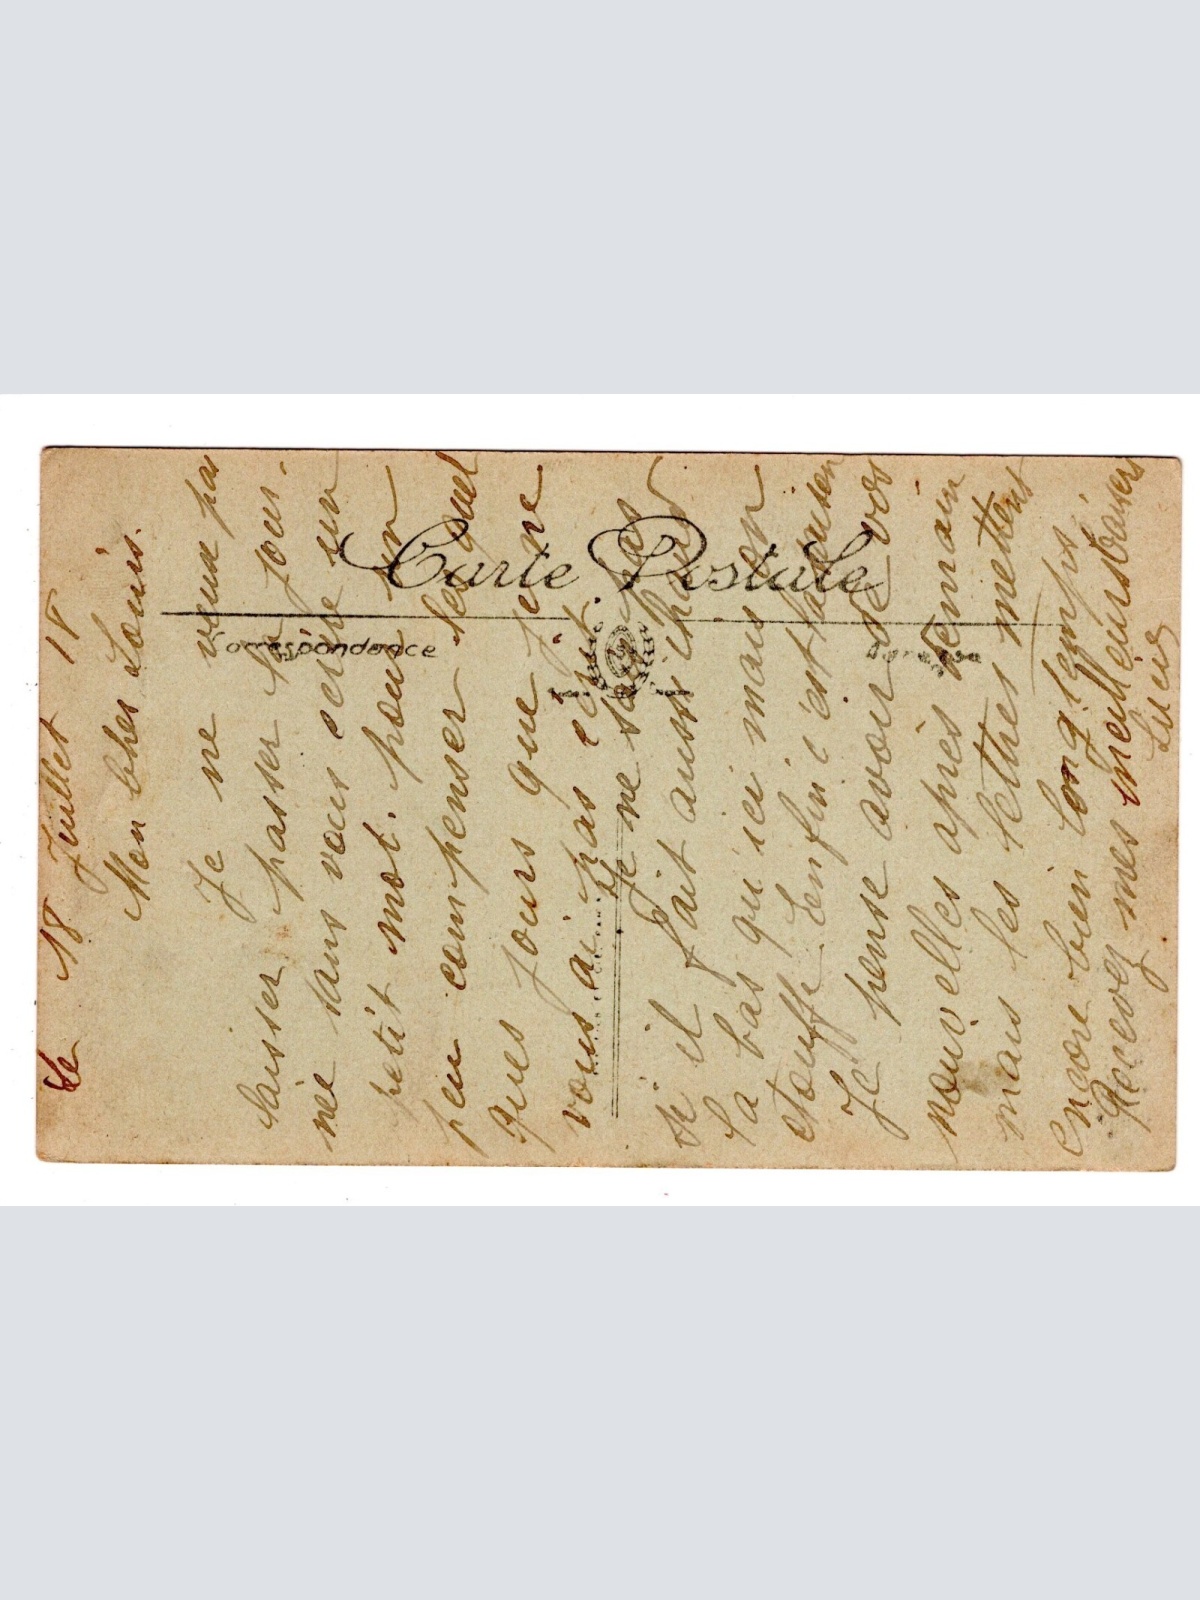 Carte Postale
Correspondance
Le 18 Juillet 18
Mon cher Louis.
Je ne veux pas
laisser passer la jour-
née sans vous écrire un
petit mot. pour un
peu compenser les quel
ques jours que je ne
vous ai pas écrit.
Je ne sais pas
si il fait aussi chaud
la bas qu'ici mais on
étouffe enfin c'est la saison
Je pense avoir de vos
nouvelles après demain
mais les lettres mettent
encore bien longtemps
Recevez mes meilleurs baisers